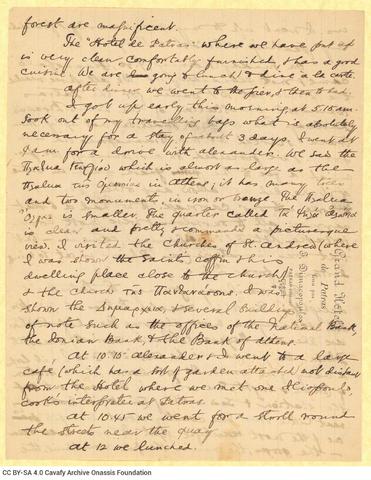 forest are magnificent.
The "Hotel de Patras" where we have put up
is very clean, comfortably furnished, & has a good
cuisine. We are going to lunch & dine a la carte.
After dinner we went to the pier, & then to bed.
I got up early this morning at 5.15 am.
Took out of my travelling bags what is absolutely
necessary for a stay of about 3 days. I went at
am for a drive with Alexander. We saw the
which is almost as large as the
in Athens; it has many trees
and two monuments, in iron or bronze. The
is smaller. The quarter called
is clean and pretty & commands a picturesque
view. I visited the Churches of St. Andrea (where
I was shown the Saint's coffin & his
dwelling place close to the church)
& the church της Παντανάσσης. I was
shown the Δημαρχείον, & several buildings
of note such as the offices of the National Bank,
the Ionian Bank, & the Bank of Athens.
At 10.15 Alexander & I went to a large
café, (which has a sort of garden attached) not distant
from the Hotel where we met one
Cook's interpreter at Patras.
at 10.45 we went for a stroll round
the streets near the quay.
at 12 we lunched.
Grand Hotel
de Patras
CC BY-SA 4.0 Cavafy Archive Onassis Foundation